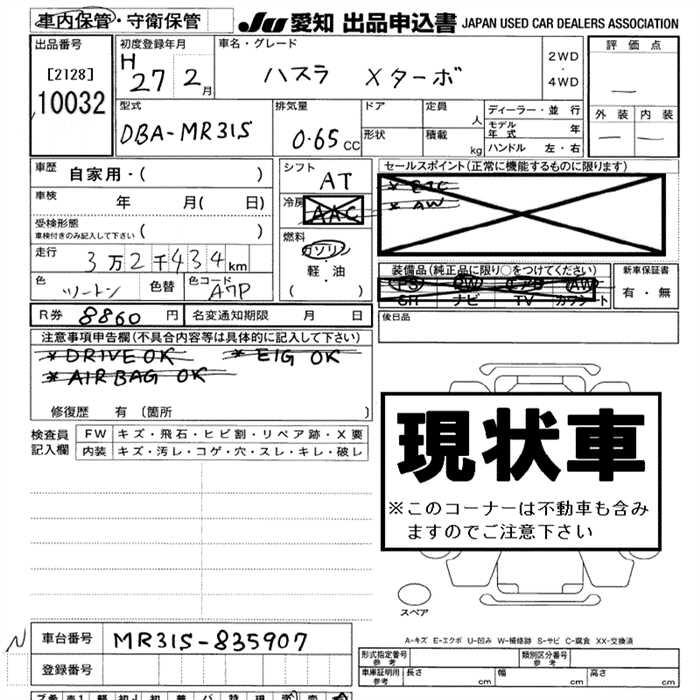 車内保管・守衛保管
JU 愛知 出品申込書 JAPAN USED CAR DEALERS ASSOCIATION
出品番号
[2128]
10032
初度登録年月
H 27 2月
車名・グレード
ハスラ Xターボ
2WD
・
4WD
評価点
—
外装 内装
— —
型式
DBA-MR31S
排気量
0.65 CC
ドア
形状
定員 人
積載 kg
ディーラー・並 行
モデル年式 年
ハンドル 左・右
車歴
自家用・( )
車検 年 月( 日)
受検形態
車検付きのみ記入して下さい ( )
走行
3万2千434km
色
ツートン
色替
色コード
A7P
シフト
AT
冷房
AAC
燃料
ガソリン
軽・油
( )
セールスポイント(正常に機能するものに限ります)
* ETC
* AW
装備品(純正品に限り○をつけてください)
PS PW エアB AW
SR ナビ TV カワシート
新車保証書
有・無
R券 8860 円
名変通知期限 月 日
後日品
注意事項申告欄(不具合内容等は具体的に記入して下さい)
* DRIVE OK * EIG OK
* AIR BAG OK
修復歴 有 [箇所 ]
検査員記入欄
FW キズ・飛石・ヒビ割・リペア跡・X要
内装 キズ・汚レ・コゲ・穴・スレ・キレ・破レ
現状車
※このコーナーは不動車も含み
ますのでご注意下さい
スペア
A-キズ E-エクボ U-凹み W-補修跡 S-サビ C-腐食 XX-交換済
N
車台番号 MR31S-835907
登録番号
形式指定番号
参考
類別区分番号
参考
車庫証明用
参考
長さ 幅 高さ